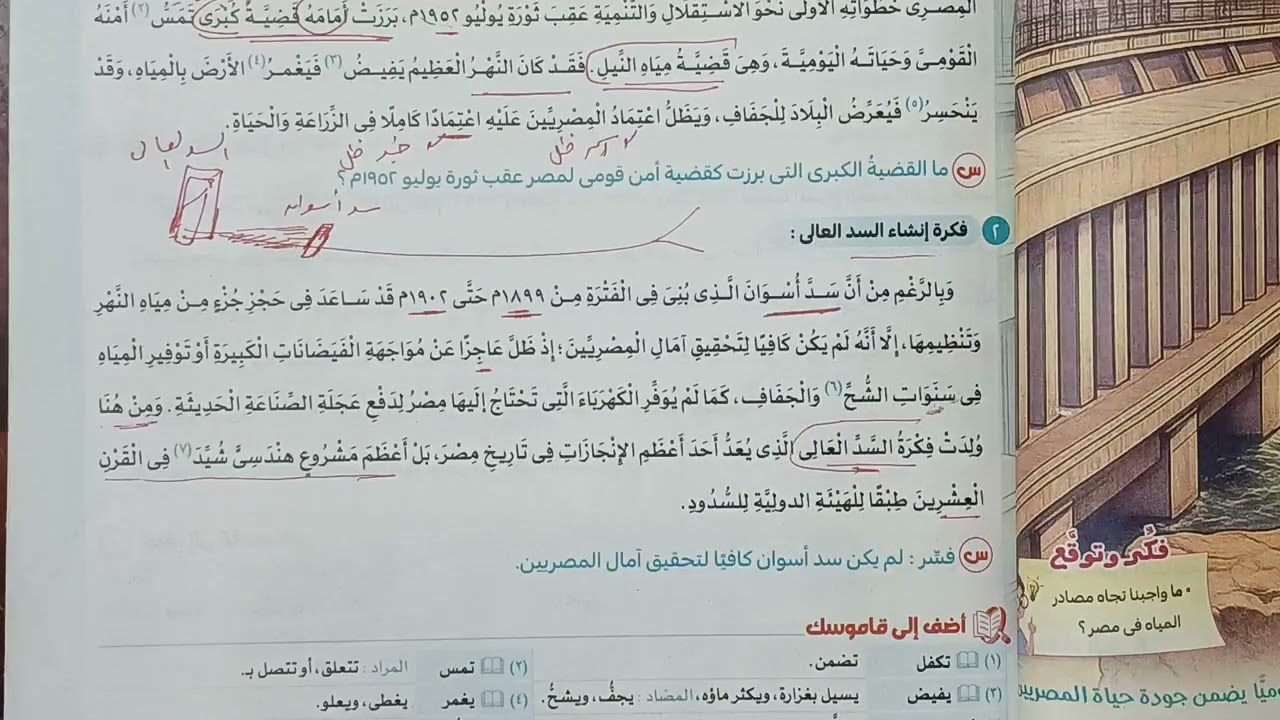 الْمِصْرِى خُطُوَاتِهِ الْأُولَى نَحْوَ الاسْتِقْلَالِ وَالتَّنْمِيَةِ عَقِبَ ثَوْرَةِ يُولْيُو ١٩٥٢م، بَرَزَتْ أَمَامَهُ قَضِيَّةٌ كُبْرَى تَمَسُّ (٢) أَمْنَهُ
الْقَوْمِىَّ وَحَيَاتَهُ الْيَوْمِيَّةَ، وَهِىَ قَضِيَّةُ مِيَاهِ النِّيلِ. فَقَدْ كَانَ النَّهْرُ الْعَظِيمُ يَفِيضُ (٣) فَيَغْمرُ (٤) الْأَرْضَ بِالْمِيَاهِ، وَقَدْ
يَنْحَسِرُ (٥) فَيُعَرِّضُ الْبِلَادَ لِلْجَفَافِ، وَيَظَلُّ اعْتِمَادُ الْمِصْرِيِّينَ عَلَيْهِ اعْتِمَادًا كَامِلًا فِى الزِّرَاعَةِ وَالْحَيَاةِ.
السد العالى
خبر ظل
اسم ظل
س ما القضيةُ الكبرى التى برزت كقضية أمن قومى لمصر عقب ثورة يوليو ١٩٥٢م؟
سد أسوان
٢ فكرة إنشاء السد العالى :
وَبِالرَّغْمِ مِنْ أَنَّ سَدَّ أُسْوَانَ الَّذِى بُنِىَ فِى الْفَتْرَةِ مِنْ ١٨٩٩م حَتَّى ١٩٠٢م قَدْ سَاعَدَ فِى حَجْزِ جُزْءٍ مِنْ مِيَاهِ النَّهْرِ
وَتَنْظِيمِهَا، إِلَّا أَنَّهُ لَمْ يَكُنْ كَافِيًا لِتَحْقِيقِ آمَالِ الْمِصْرِيِّينَ؛ إِذْ ظَلَّ عَاجِزًا عَنْ مُوَاجَهَةِ الْفَيَضَانَاتِ الْكَبِيرَةِ أَوْ تَوْفِيرِ الْمِيَاهِ
فِى سَنَوَاتِ الشُّحِّ (٦) وَالْجَفَافِ، كَمَا لَمْ يُوَفِّرِ الْكَهْرَبَاءَ الَّتِى تَحْتَاجُ إِلَيْهَا مِصْرُ لِدَفْعِ عَجَلَةِ الصِّنَاعَةِ الْحَدِيثَةِ. وَمِنْ هُنَا
وُلِدَتْ فِكْرَةُ السَّدِّ الْعَالِى الَّذِى يُعَدُّ أَحَدَ أَعْظَمِ الْإِنْجَازَاتِ فِى تَارِيخِ مِصْرَ، بَلْ أَعْظَمَ مَشْرُوعٍ هَنْدَسِىٍّ شُيِّدَ (٧) فِى الْقَرْنِ
الْعِشْرِينَ طِبْقًا لِلْهَيْئَةِ الدولِيَّةِ لِلسُّدُودِ.
س فسِّر : لم يكن سد أسوان كافيًا لتحقيق آمال المصريين.
فكِّر وتوقَّع
• ما واجبنا تجاه مصادر
المياه فى مصر؟
أضف إلى قاموسك
(١) تكفل تضمن. (٢) تمس المراد : تتعلق، أو تتصل بـ.
(٣) يفيض يسيل بغزارة، ويكثر ماؤه، المضاد : يجفُّ، ويشحُّ. (٤) يغمر يغطى، ويعلو.
وميًّا يضمن جودة حياة المصريين